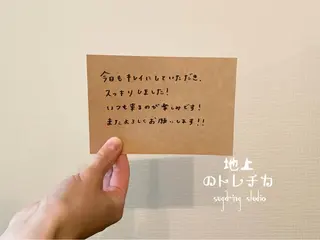 今日もキレイにしていただき、
スッキリしました！
いつも来るのが楽しみです！
またよろしくお願いします！！
地上
のトレチカ
sugaring studio